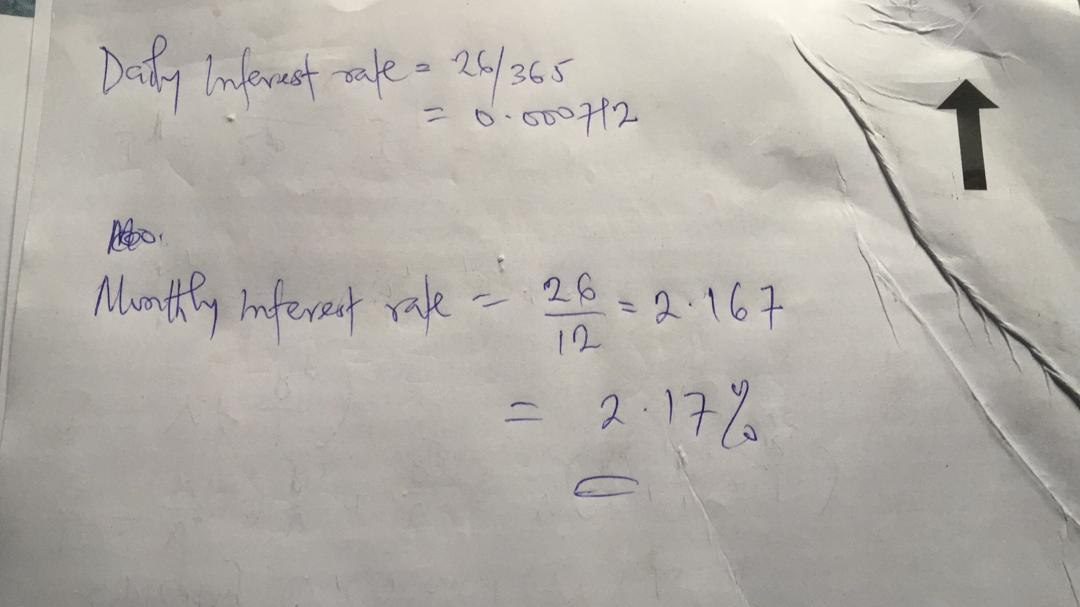 Daily Interest rate = 26/365
= 0.000712
Monthly Interest rate = 26/12 = 2.167
= 2.17%